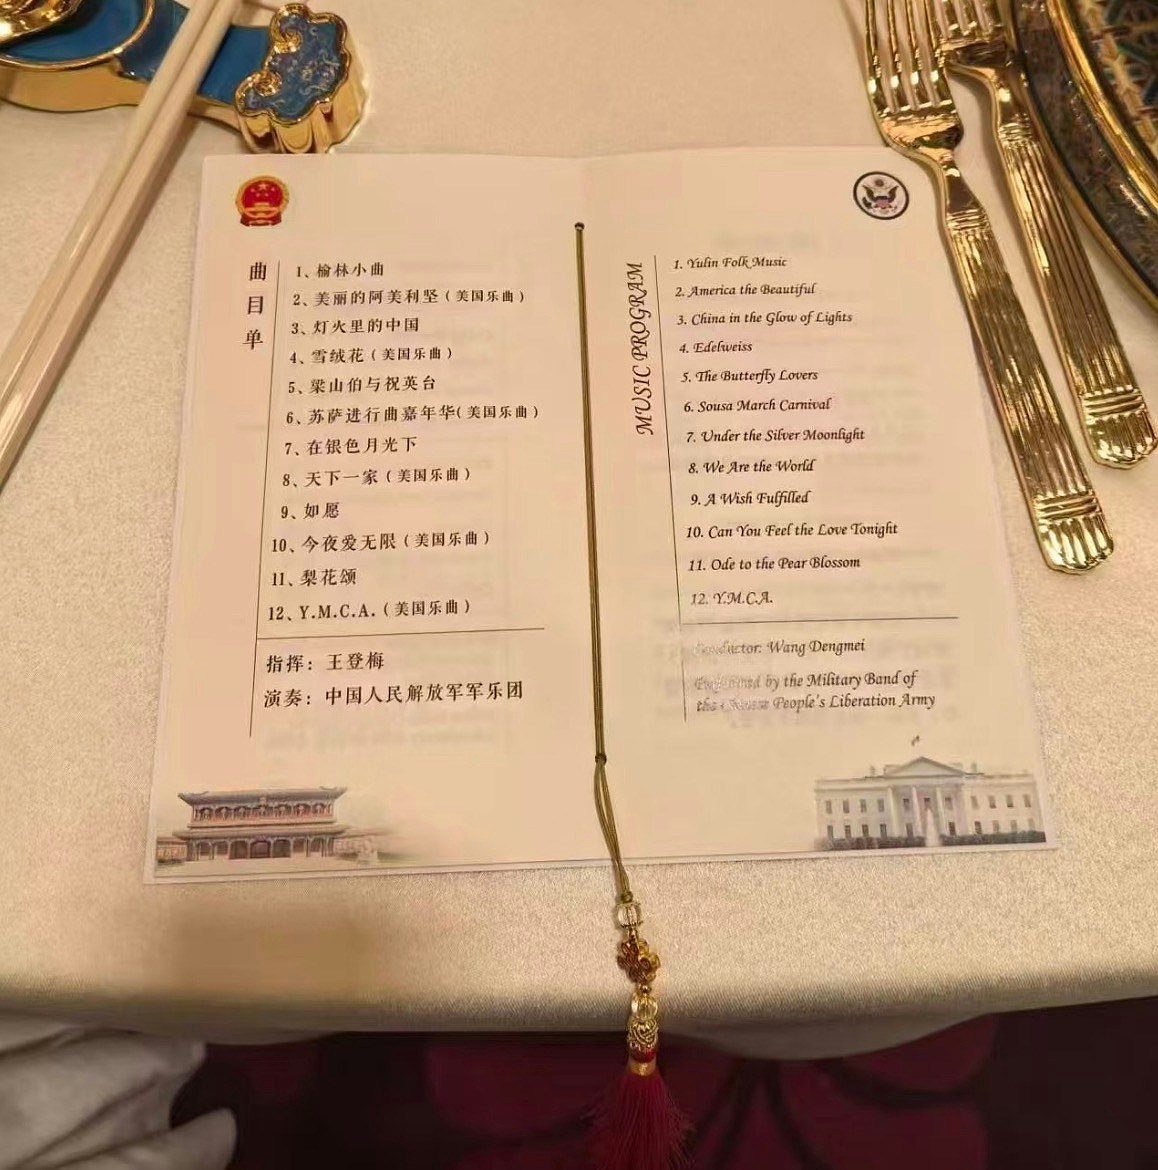 曲目单
1、榆林小曲
2、美丽的阿美利坚（美国乐曲）
3、灯火里的中国
4、雪绒花（美国乐曲）
5、梁山伯与祝英台
6、苏萨进行曲嘉年华(美国乐曲）
7、在银色月光下
8、天下一家（美国乐曲）
9、如愿
10、今夜爱无限（美国乐曲）
11、梨花颂
12、Y.M.C.A.（美国乐曲）
指挥：王登梅
演奏：中国人民解放军军乐团
MUSIC PROGRAM
1. Yulin Folk Music
2. America the Beautiful
3. China in the Glow of Lights
4. Edelweiss
5. The Butterfly Lovers
6. Sousa March Carnival
7. Under the Silver Moonlight
8. We Are the World
9. A Wish Fulfilled
10. Can You Feel the Love Tonight
11. Ode to the Pear Blossom
12. Y.M.C.A.
Conductor: Wang Dengmei
by the Military Band of
the Chinese People's Liberation Army